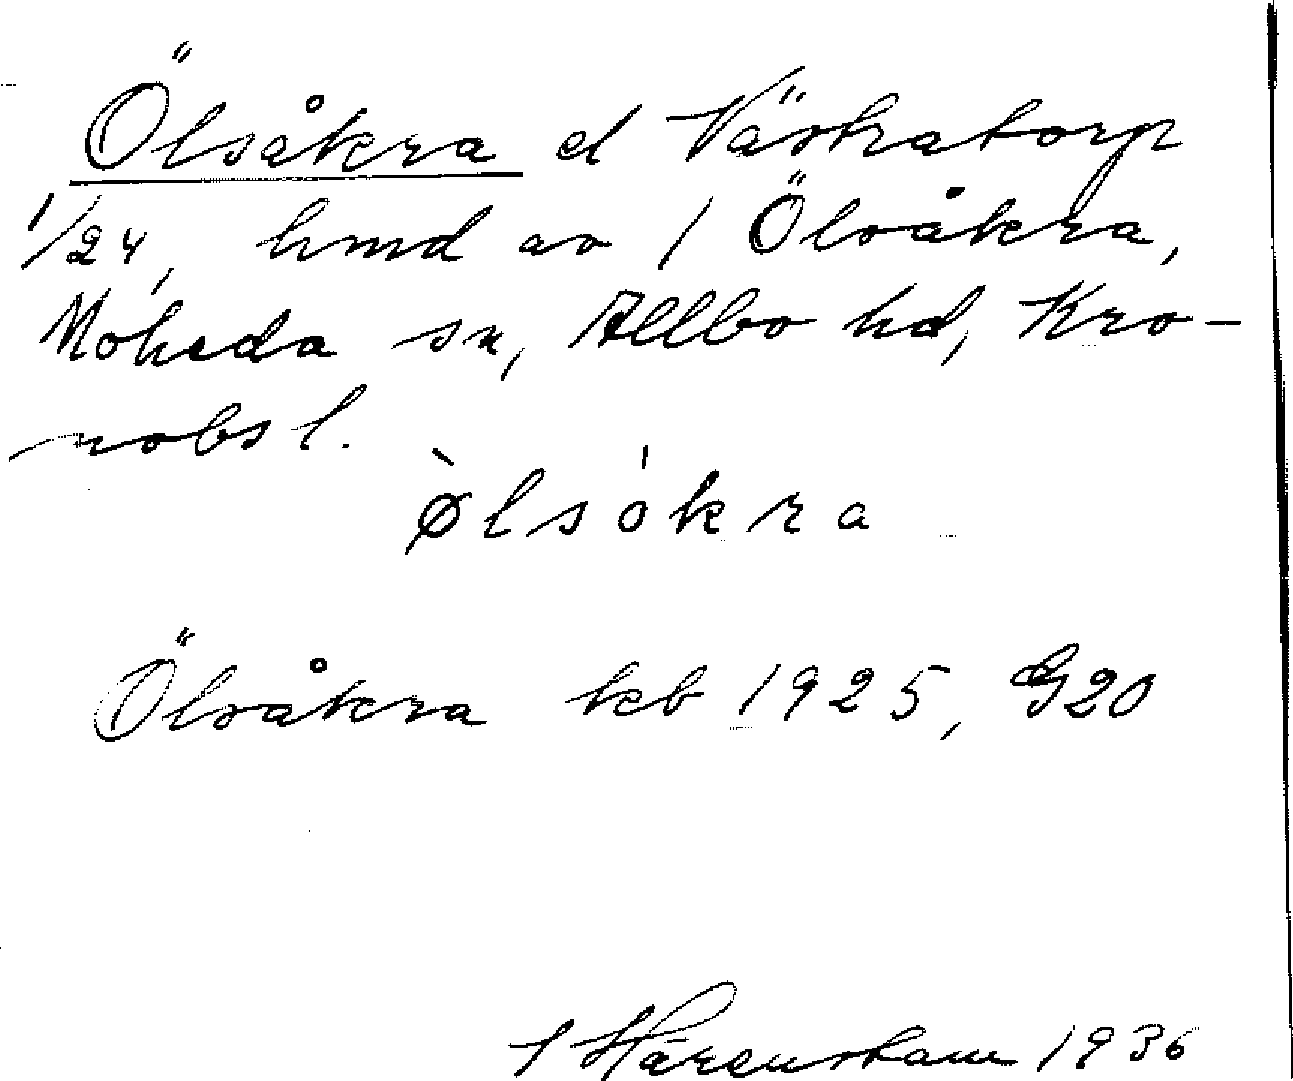 Ölsåkra el Västratorp
1/24, hmd av 1 Ölsåkra,
Moheda sn, Allbo hd, Kro-
nobs l.
ø̀lsókra
Ölsåkra kb 1925, G20
Härenstam 1936